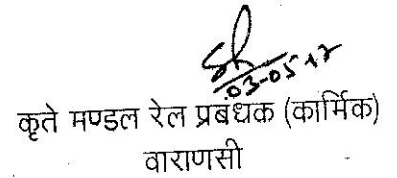 03-05-12
कृते मण्डल रेल प्रबंधक (कार्मिक)
वाराणसी